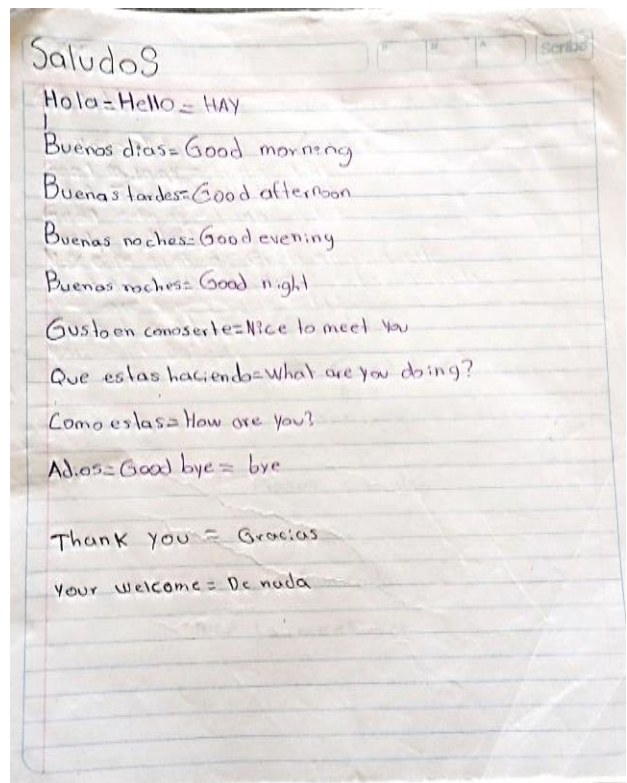 Saludos
Scribe
Hola = Hello = HAY
Buenos dias = Good morning
Buenas tardes = Good afternoon
Buenas noches = Good evening
Buenas noches = Good night
Gusto en conoserte = Nice to meet you
Que estas haciendo = What are you doing?
Como estas = How are you?
Adios = Good bye = bye
Thank you = Gracias
Your welcome = De nada